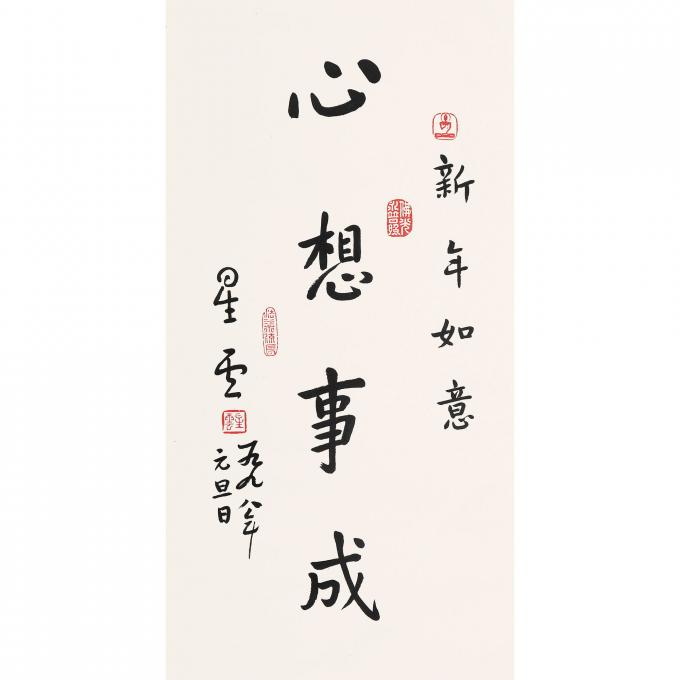 新年如意
心想事成
星云
星雲
一九九八年
元旦日